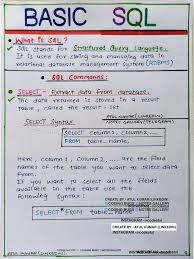 BASIC SQL
What is SQL?
SQL stands for Structured Query Language.
It is used for storing and managing data in
relational database management system (RDBMS)
SQL Commands:
SELECT - Extract data from database.
The data returned is stored in a result
table, called the result-set.
Select Syntax
SELECT column1, column2,...
FROM table_name;
Here, column1, column2,... are the field
names of the table you want to select
data from.
If you want to select all the fields
available in the table use the
following Syntax:
SELECT * FROM table_name;
CREATE BY - ATUL KUMAR (LINKEDIN)